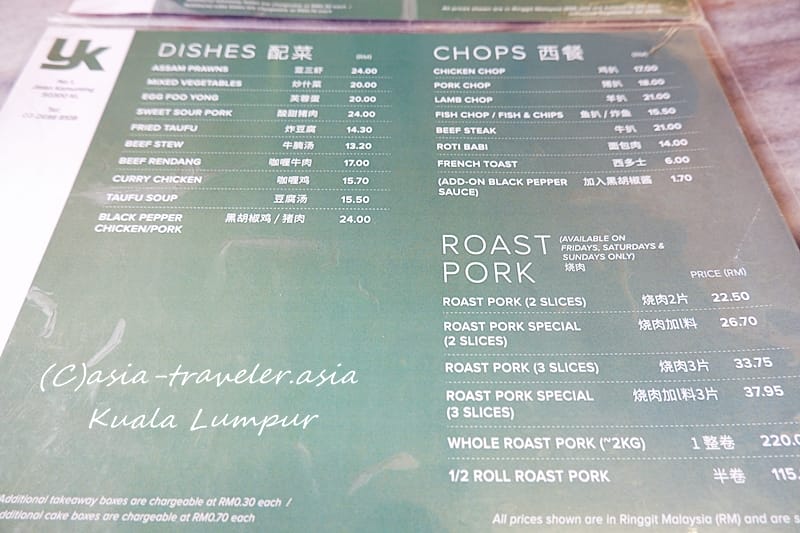 All prices shown are in Ringgit Malaysia
yk
No 1,
Jalan Kamunting
50300 KL
Tel:
DISHES 配菜 (RM)
ASSAM PRAWNS 亚三虾 24.00
MIXED VEGETABLES 炒什菜 20.00
EGG FOO YONG 芙蓉蛋 20.00
SWEET SOUR PORK 酸甜猪肉 24.00
FRIED TAUFU 炸豆腐 14.30
BEEF STEW 牛腩汤 13.20
BEEF RENDANG 咖喱牛肉 17.00
CURRY CHICKEN 咖喱鸡 15.70
TAUFU SOUP 豆腐汤 15.50
BLACK PEPPER 黑胡椒鸡 / 猪肉 24.00
CHICKEN/PORK
CHOPS 西餐 (RM)
CHICKEN CHOP 鸡扒 17.00
PORK CHOP 猪扒 18.00
LAMB CHOP 羊扒 21.00
FISH CHOP / FISH & CHIPS 鱼扒 / 炸鱼 15.50
BEEF STEAK 牛扒 21.00
ROTI BABI 面包肉 14.00
FRENCH TOAST 西多士 6.00
(ADD-ON BLACK PEPPER 加入黑胡椒酱 1.70
SAUCE)
ROAST
PORK
(AVAILABLE ON
FRIDAYS, SATURDAYS &
SUNDAYS ONLY)
烧肉
PRICE (RM)
ROAST PORK (2 SLICES) 烧肉2片 22.50
ROAST PORK SPECIAL 烧肉加料 26.70
(2 SLICES)
ROAST PORK (3 SLICES) 烧肉3片 33.75
ROAST PORK SPECIAL 烧肉加料3片 37.95
(3 SLICES)
WHOLE ROAST PORK (~2KG) 1整卷 220.0
1/2 ROLL ROAST PORK 半卷 115.
(C)asia-traveler.asia
Kuala Lumpur
Additional takeaway boxes are chargeable at RM0.30 each /
additional cake boxes are chargeable at RM0.70 each
All prices shown are in Ringgit Malaysia (RM) and are s